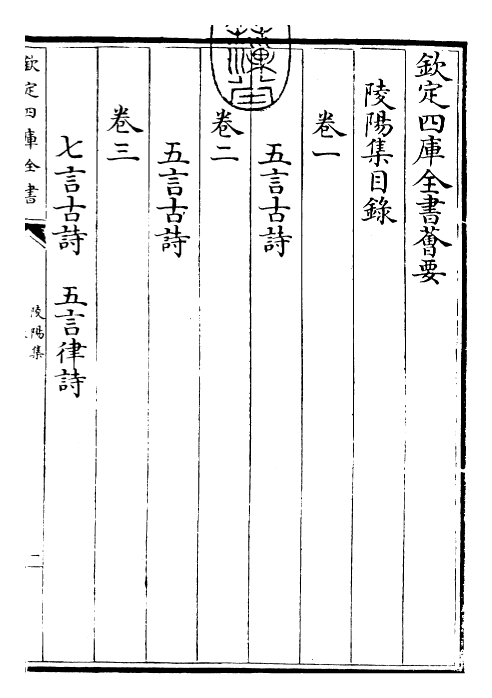 欽定四庫全書薈要
陵陽集目錄
卷一
五言古詩
卷二
五言古詩
卷三
七言古詩　五言律詩
欽定四庫全書
陵陽集